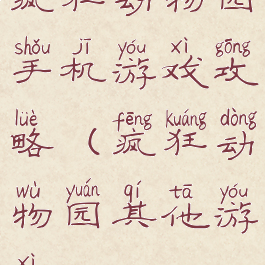 疯狂动物园
shǒu jī yóu xì gōng
手机游戏攻
lüè fēng kuáng dòng
略（疯狂动
wù yuán qí tā yóu
物园其他游
xì